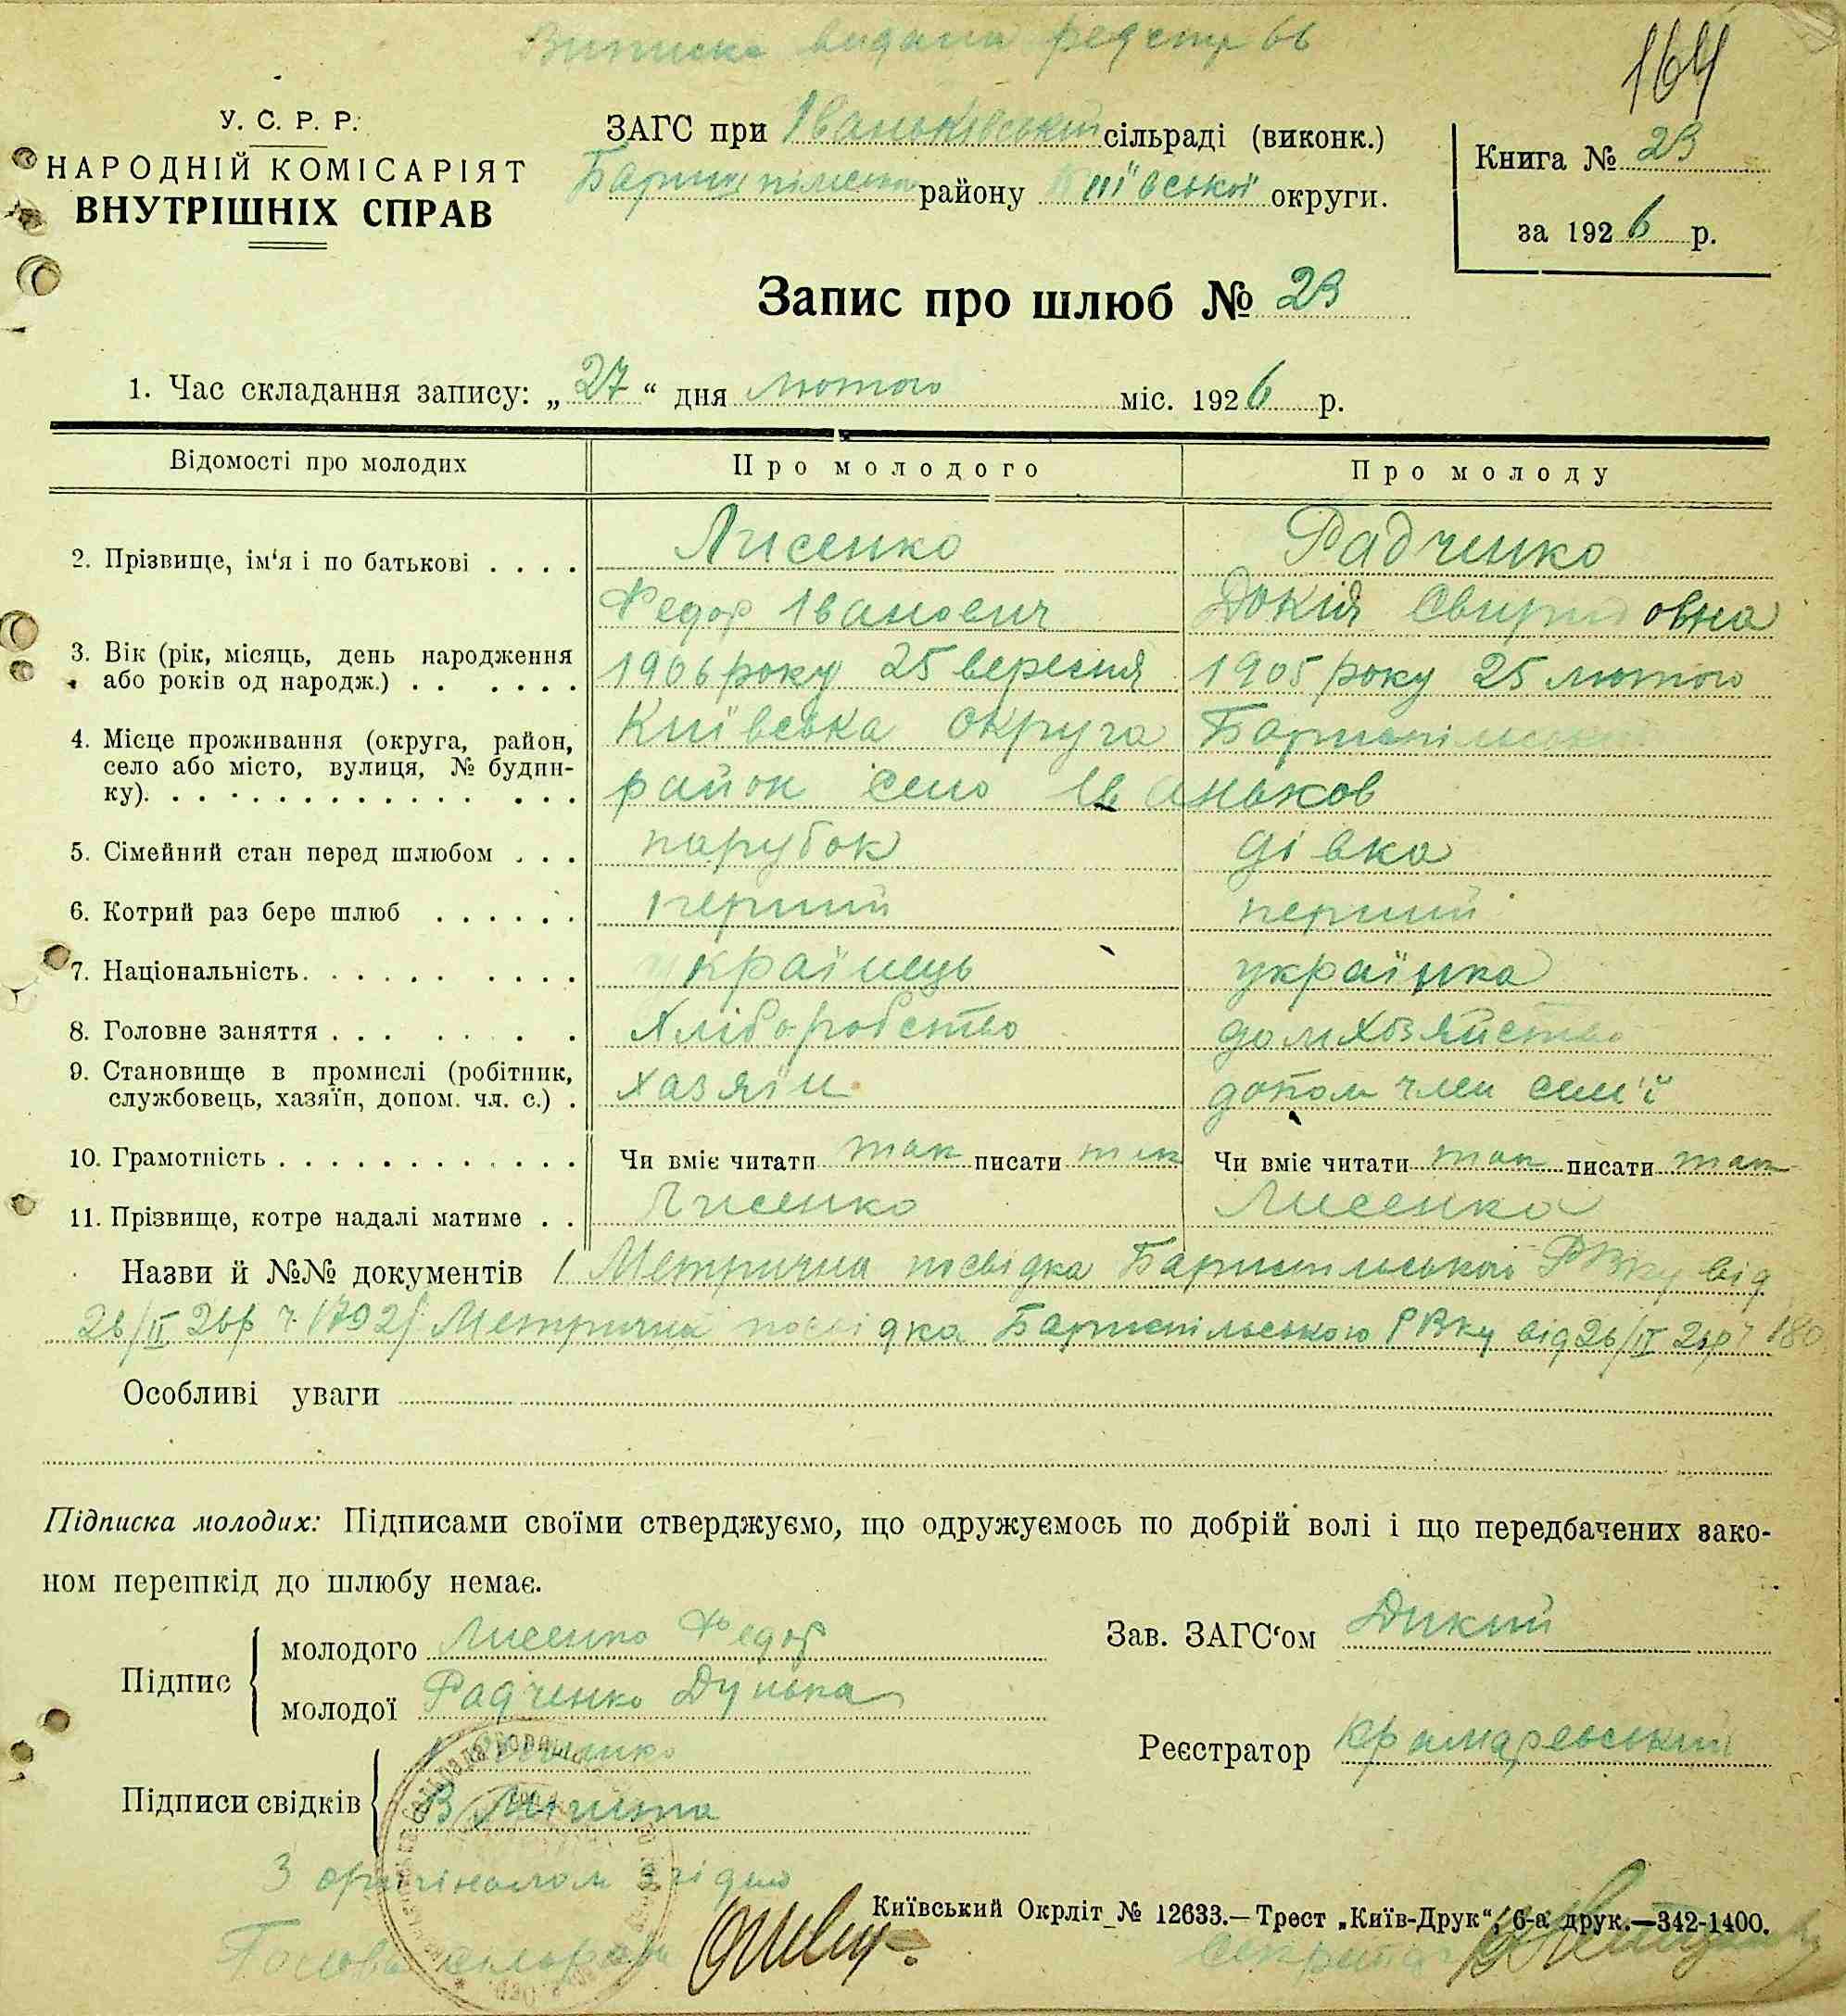 Виписка видана
164
У. С. Р. Р.
НАРОДНІЙ КОМІСАРІЯТ
ВНУТРІШНІХ СПРАВ
ЗАГС при Іваньківській сільраді (виконк.)
Баришпільська району Київської округи.
Книга № 23
за 1926 р.
Запис про шлюб № 23
1. Час складання запису: „ 27 “ дня лютого міс. 1926 р.
Відомості про молодих Про молодого Про молоду
2. Прізвище, ім‘я і по батькові . . . . Лисенко Радченко
Федор Іванович Докія Свиридовна
3. Вік (рік, місяць, день народження
або років од народж.) . . . . . . 1906 року 25 вересня 1905 року 25 лютого
4. Місце проживання (округа, район,
село або місто, вулиця, № будин-
ку). . . . . . . . . . . . . . . Київська округа Баришпільський
район село Іваньков
5. Сімейний стан перед шлюбом . . . парубок дівка
6. Котрий раз бере шлюб . . . . . . перший перший
7. Національність. . . . . . . . . . українець українка
8. Головне заняття . . . . . . . Хліборобство домхозяйство
9. Становище в промислі (робітник,
службовець, хазяїн, допом. чл. с.) . хазяїн допом член сем'ї
10. Грамотність . . . . . . . . . . . . . Чи вміє читати так писати так Чи вміє читати так писати так
11. Прізвище, котре надалі матиме . . Лисенко Лисенко
Назви й №№ документів 1/ Метрична посвідка Баришпільського РВКу від
26/II 26р ч. 179 2/ Метрична посвідка Баришпільського РВКу від 26/II 26р ч 180
Особливі уваги
Підписка молодих: Підписами своїми стверджуємо, що одружуємось по добрій волі і що передбачених зако-
ном перешкід до шлюбу немає.
Підпис
молодого Лисенко Федор
молодої Радченко Дунька
Зав. ЗАГС‘ом Дикий
Реєстратор Крамаревський
Підписи свідків
З оригіналом згідно
Голова сільради
Секретар
Київський Окрліт № 12633.—Трест „Київ-Друк“, 6-а друк.—342-1400.